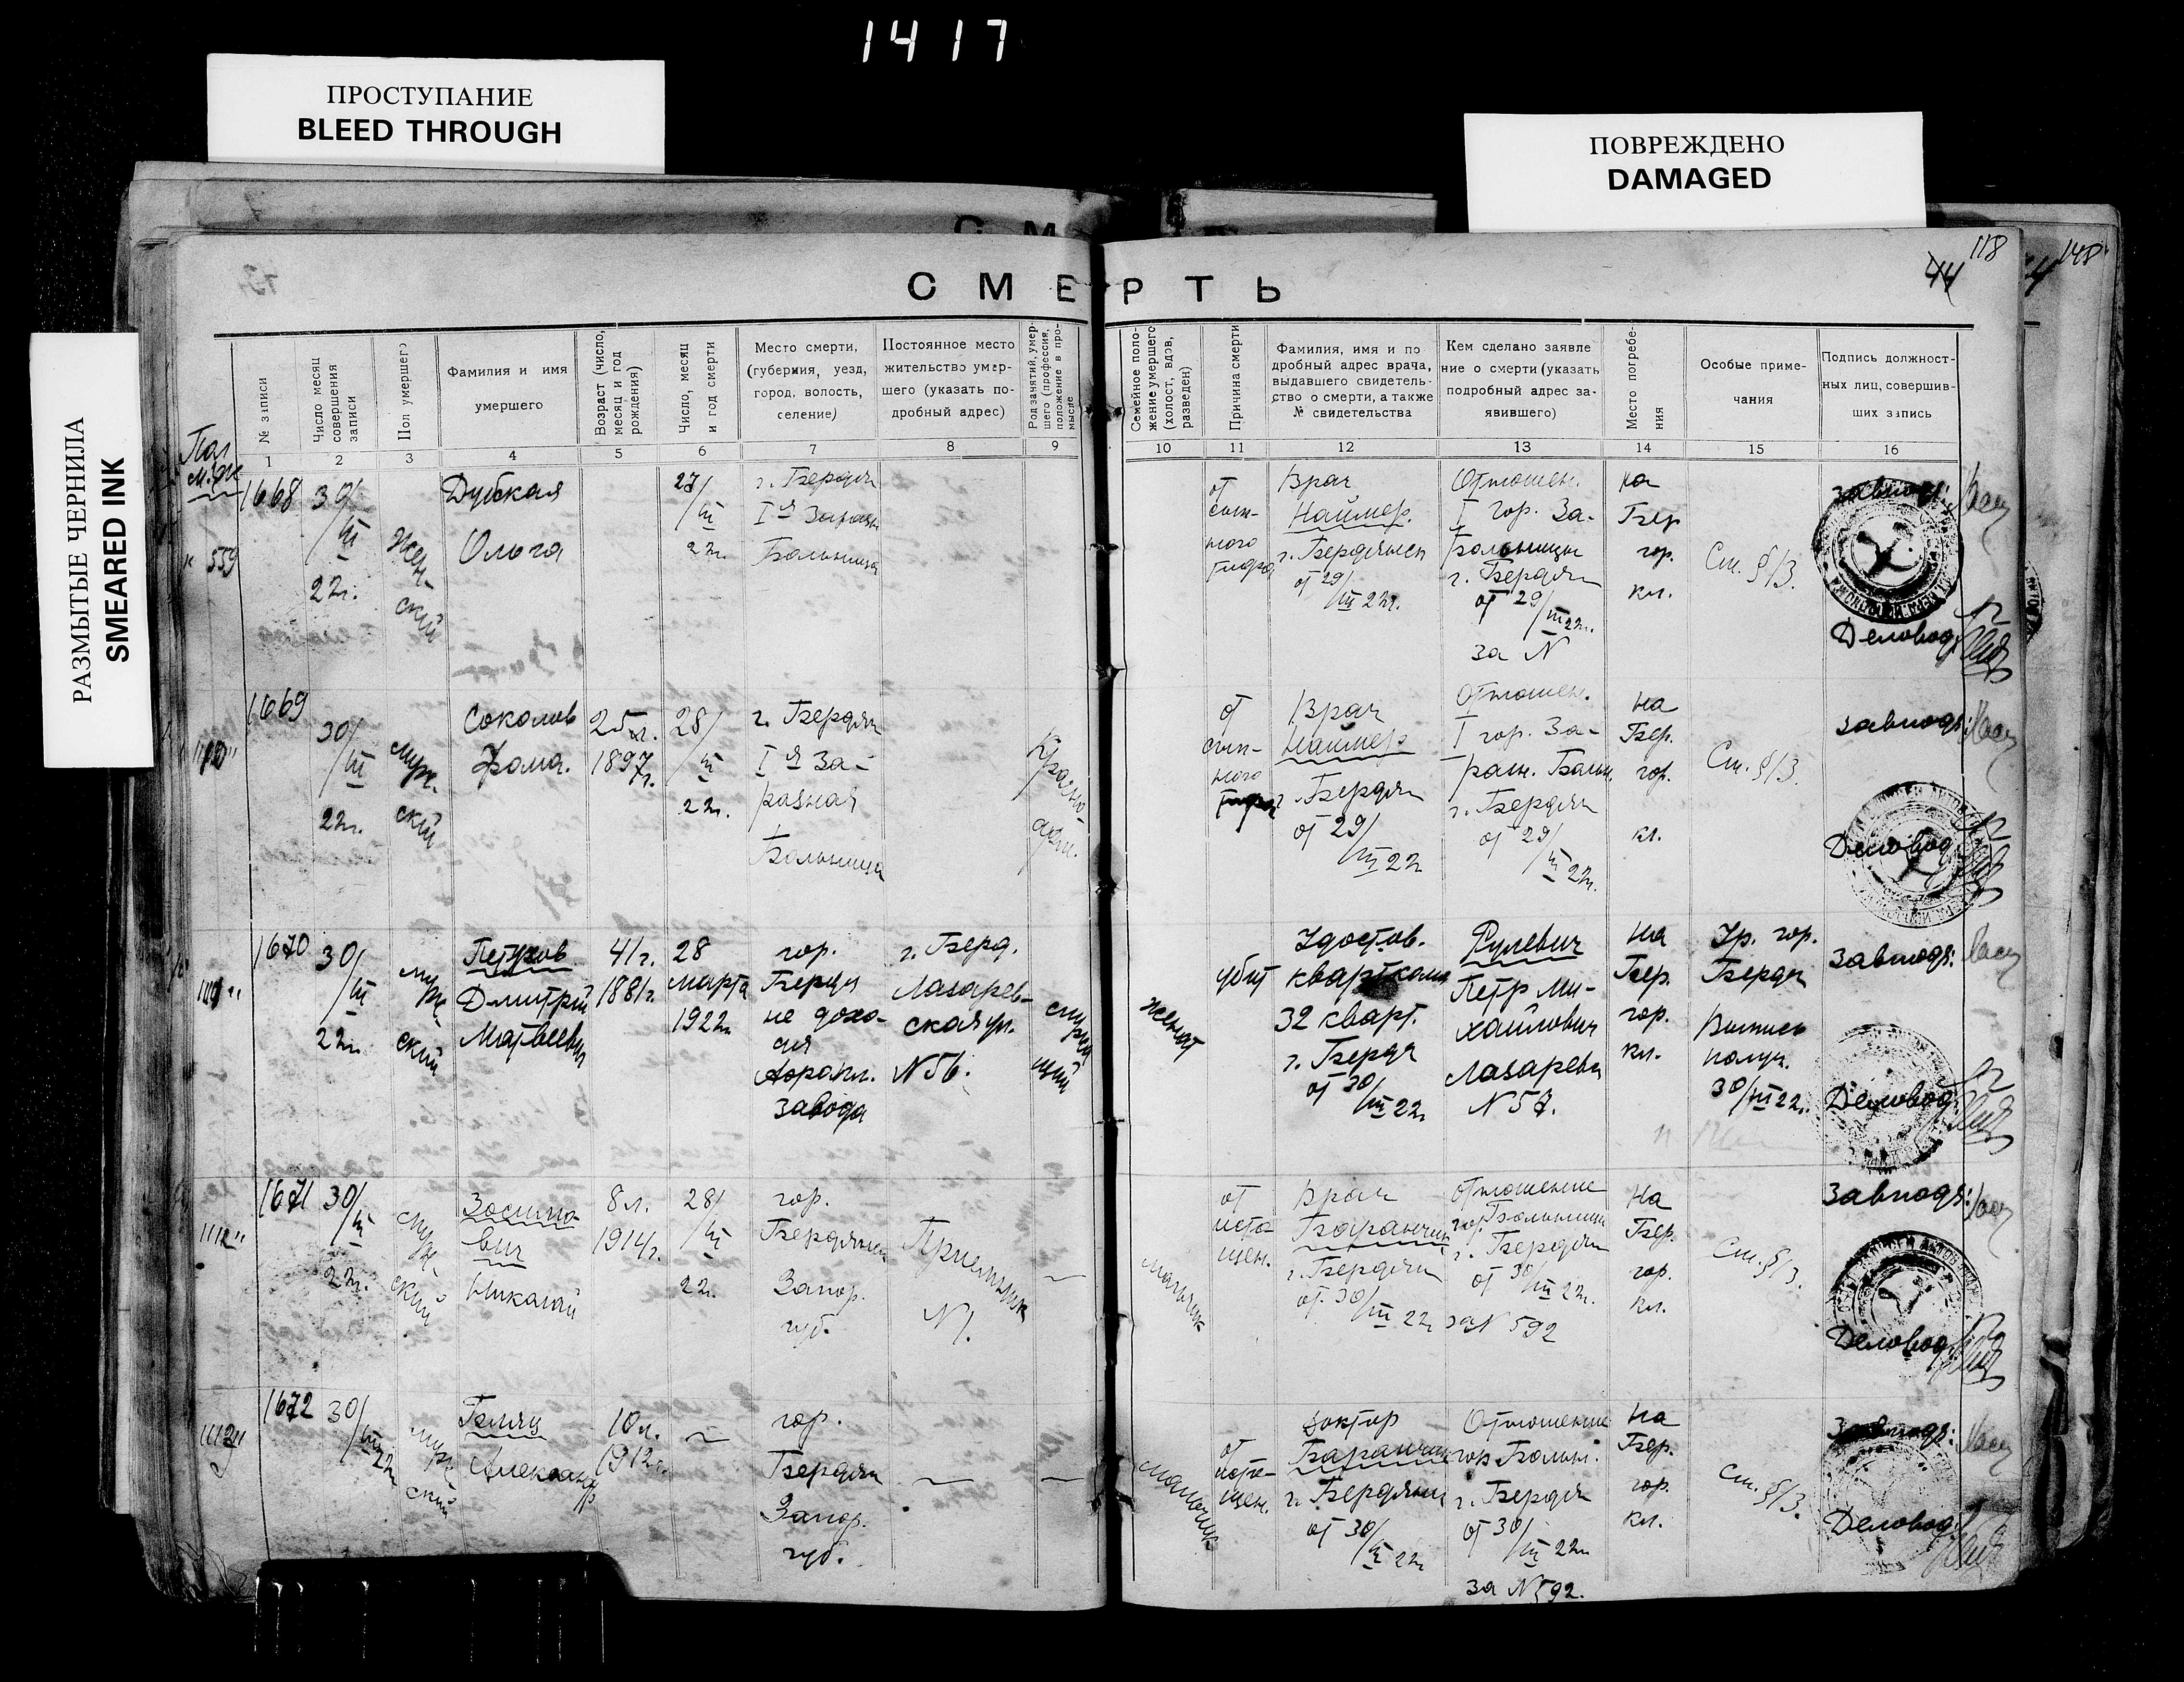 1417
ПРОСТУПАНИЕ
BLEED THROUGH
ПОВРЕЖДЕНО
DAMAGED
РАЗМЫТЫЕ ЧЕРНИЛА
SMEARED INK
118
44
148
СМЕРТЬ
№ записи
Число месяц совершения записи
Пол умершего
Фамилия и имя
умершего
Возраст (число, месяц и год рождения)
Число, месяц и год смерти
Место смерти,
(губерния, уезд,
город, волость,
селение)
Постоянное место
жительство умер-
шего (указать по-
дробный адрес)
Род занятий, умер-
шего (профессия,
положение в про-
мысле
Семейное поло-
жение умершего
(холост, вдов,
разведен)
Причина смерти
Фамилия, имя и по
дробный адрес врача,
выдавшего свидетель-
ство о смерти, а также
№ свидетельства
Кем сделано заявле
ние о смерти (указать
подробный адрес за-
явившего)
Место погребе-
ния
Особые приме-
чания
Подпись должност-
ных лиц, совершив-
ших запись
1 2 3 4 5 6 7 8 9 10 11 12 13 14 15 16
559
1668
30/III
22г.
Жен-
ский
Дубская
Ольга
27/III
22г.
г. Бердян
Iя Заразн
Больница
от
сып-
ного
тифа
Врач
Наймер.
г. Бердянск
от 29/III 22г.
Отношен.
I гор. За-
Больницы
г. Бердян
от 29/III 22г.
за N
на
Бер
гор.
кл.
См. §/3.
Завподъ:
Деловод
1669
30/III
22г.
муж.
ский
Соколов
Фома.
25 л.
1897 г.
28/III
22г.
г. Бердян
Iя За-
разная
Больница
Красно-
арм.
от
сып-
ного
тифа
Врач
Наймер
г. Бердян
от 29/III 22
Отношен.
I гор. За-
разн. Больн.
г. Бердян
от 29/III 22г.
на
Бер.
гор.
кл.
См. §/3.
Завподъ:
Деловод
1670
30/III
22г.
муж-
ский
Петухов
Дмитрий
Матвеевич
41 г.
1881 г.
28
марта
1922г
гор.
Бердян
не дохо-
дя
Аэропл.
завода
г. Берд.
Лазарев-
ская ул.
N 56.
служа
щий
женат
убит
Удостов.
квартком
32 кварт.
г. Бердя
от 30/III 22г
Рулевич
Петр Ми-
хайлович
Лазаревск
N 57.
На
Бер.
гор.
кл.
Гр. гор.
Бердя
Выпись
получ.
30/III 22г.
Завподъ:
Деловод
1671
30/III
22г.
муж-
ский
Зосимо-
вич
Николай
8 л.
1914 г.
28/III
22г.
гор.
Бердянск
Запор.
губ.
Приемник
N 1.
—
мальчик
от
исто-
щен.
Врач
Баранчик
г. Бердян
от 30/III 22г
отношение
гор. Больницы
г. Бердян
от 30/III 22г.
за N 592
На
Бер.
гор.
кл.
См. §/3.
Завподъ:
Деловод
1672
30/III 22г
муж-
ский
Александр
10 л.
1912 г.
—
гор.
Бердян
Запор.
губ.
—
—
мальчик
от
исто-
щен.
Доктор
Баранчик
г. Бердянск
от 30/III 22г
Отношение
гор Больн.
г. Бердян
от 30/III 22г
за N 592.
На
Бер.
гор.
кл.
См. §/3.
Завподъ:
Деловод